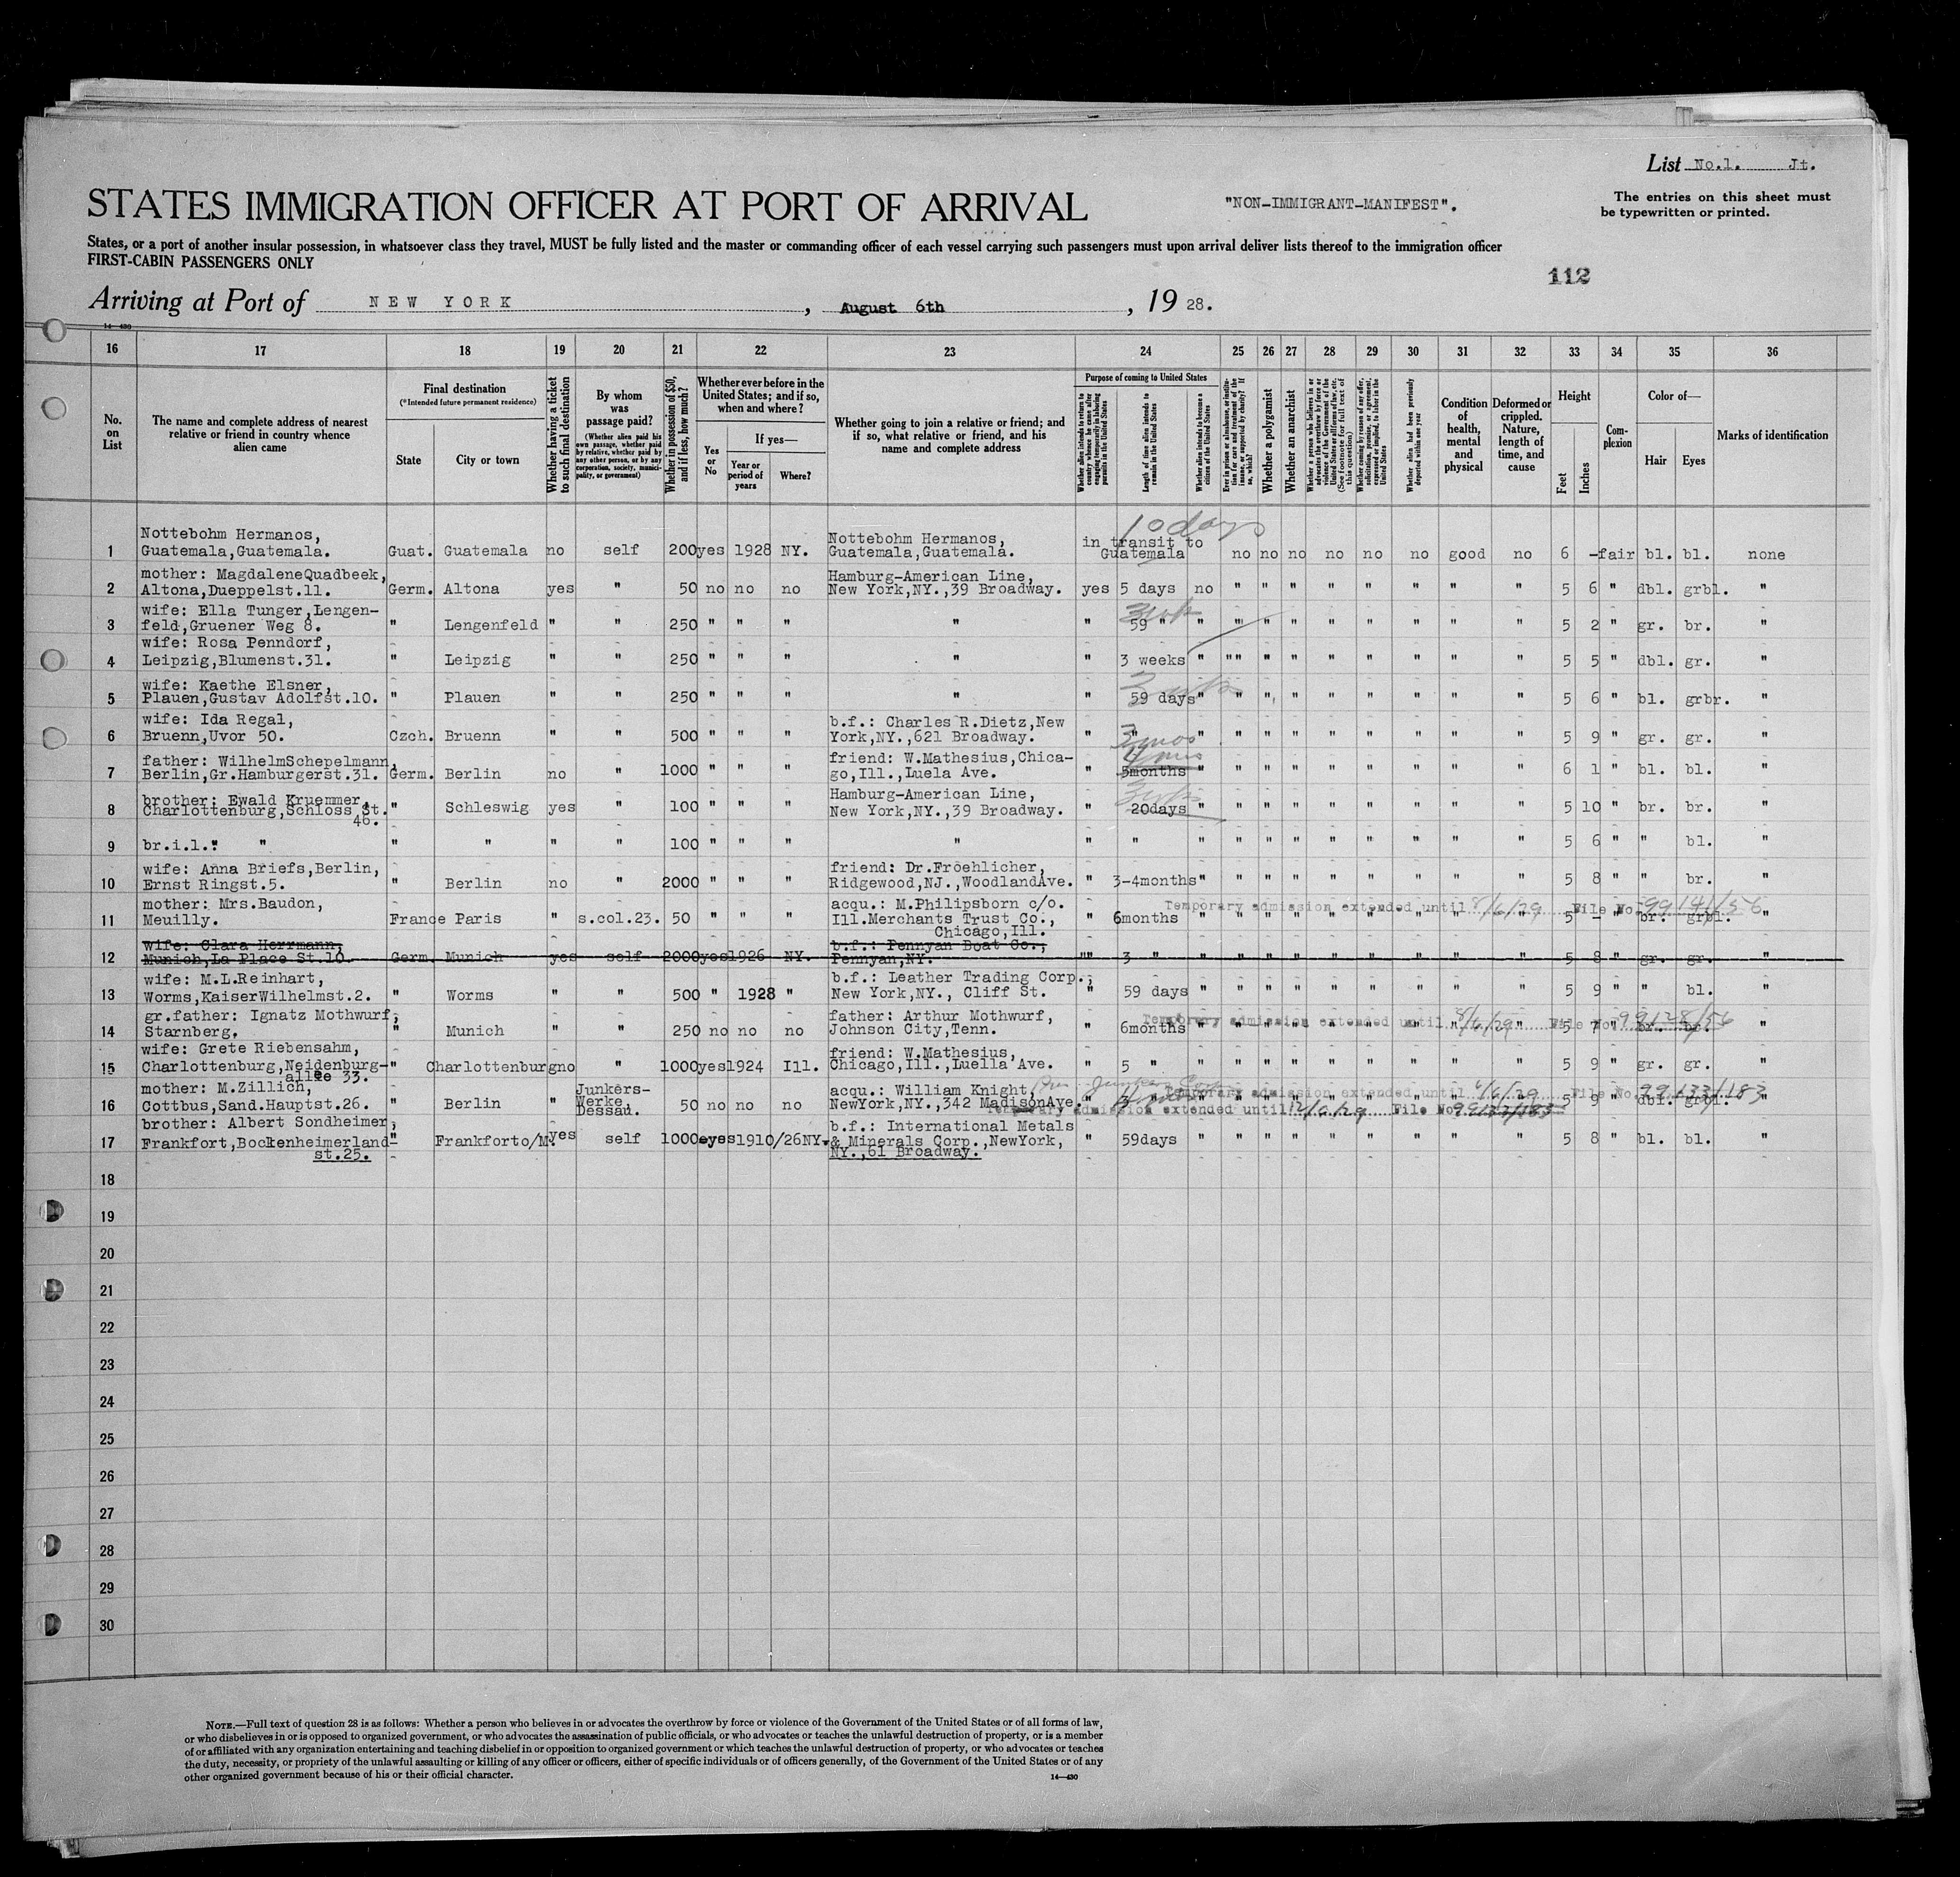 List No.1. Jt.
STATES IMMIGRATION OFFICER AT PORT OF ARRIVAL
"NON-IMMIGRANT-MANIFEST".
The entries on this sheet must
be typewritten or printed.
States, or a port of another insular possession, in whatsoever class they travel, MUST be fully listed and the master or commanding officer of each vessel carrying such passengers must upon arrival deliver lists thereof to the immigration officer
FIRST-CABIN PASSENGERS ONLY
112
Arriving at Port of NEW YORK, August 6th, 1928.
14—430
16 17 18 19 20 21 22 23 24 25 26 27 28 29 30 31 32 33 34 35 36
No. on List
The name and complete address of nearest relative or friend in country whence alien came
Final destination
(*Intended future permanent residence)
State
City or town
Whether having a ticket to such final destination
By whom was passage paid?
(Whether alien paid his own passage, whether paid by relative, whether paid by any other person, or by any corporation, society, municipality, or government)
Whether in possession of $50, and if less, how much?
Whether ever before in the United States; and if so, when and where?
Yes or No
If yes—
Year or period of years
Where?
Whether going to join a relative or friend; and if so, what relative or friend, and his name and complete address
Purpose of coming to United States
Whether alien intends to return to country whence he came after engaging temporarily in laboring pursuits in the United States
Length of time alien intends to remain in the United States
Whether alien intends to become a citizen of the United States
Ever in prison or almshouse, or institution for care and treatment of the insane, or supported by charity? If so, which?
Whether a polygamist
Whether an anarchist
Whether a person who believes in or advocates the overthrow by force or violence of the Government of the United States or all forms of law, etc. (See footnote for full text of this question)
Whether coming by reason of any offer, solicitation, promise, or agreement, expressed or implied, to labor in the United States
Whether alien had been previously deported within one year
Condition of health, mental and physical
Deformed or crippled. Nature, length of time, and cause
Height
Feet
Inches
Complexion
Color of—
Hair
Eyes
Marks of identification
10 days
Nottebohm Hermanos, Nottebohm Hermanos, in transit to
1 Guatemala,Guatemala. Guat. Guatemala no self 200 yes 1928 NY. Guatemala,Guatemala. Guatemala no no no no no no good no 6 - fair bl. bl. none
mother: MagdaleneQuadbeek, Hamburg-American Line,
2 Altona,Dueppelst.11. Germ. Altona yes " 50 no no no New York,NY.,39 Broadway. yes 5 days no " " " " " " " " 5 6 " dbl. grbl. "
wife: Ella Tunger,Lengen-
3 feld,Gruener Weg 8. " Lengenfeld " " 250 " " " " " 59 " " " " " " " " " " 5 2 " gr. br. "
wife: Rosa Penndorf,
4 Leipzig,Blumenst.31. " Leipzig " " 250 " " " " " 3 weeks " "" " " " " " " " 5 5 " dbl. gr. "
wife: Kaethe Elsner,
5 Plauen,Gustav Adolfst.10. " Plauen " " 250 " " " " " 59 days " " " " " " " " " 5 6 " bl. grbr. "
wife: Ida Regal, b.f.: Charles R.Dietz,New
6 Bruenn,Uvor 50. Czch. Bruenn " " 500 " " " York,NY.,621 Broadway. " " 3 mos " " " " " " " " " 5 9 " gr. gr. "
father: WilhelmSchepelmann, friend: W.Mathesius,Chica- 4 mos
7 Berlin,Gr.Hamburgerst.31. Germ. Berlin no " 1000 " " " go,Ill.,Luela Ave. " 5months " " " " " " " " " 6 1 " bl. bl. "
brother: Ewald Kruemmer, Hamburg-American Line,
8 Charlottenburg,Schloss St. " Schleswig yes " 100 " " " New York,NY.,39 Broadway. " 20days " " " " " " " " " 5 10 " br. br. "
46.
9 br.i.l.: " " " " " 100 " " " " " " " " " " " " " " " 5 6 " " bl. "
wife: Anna Briefs,Berlin, friend: Dr.Froehlicher,
10 Ernst Ringst.5. " Berlin no " 2000 " " " Ridgewood,NJ.,WoodlandAve. " 3-4months " " " " " " " " " 5 8 " " br. "
mother: Mrs.Baudon, acqu.: M.Philipsborn c/o. Temporary admission extended until 8/6/29 File No. 99141/56
11 Meuilly. France Paris " s.col.23. 50 " " " Ill.Merchants Trust Co., " 6months " " " " " " " " " 5 - " br. grbl. "
Chicago,Ill.
wife: Clara Herrmann, b.f.: Pennyan Boat Co.,
12 Munich,La Place St.10. Germ. Munich yes self 2000 yes 1926 NY. Pennyan,NY. "" 3 " " " " " " " " " " 5 8 " gr. gr. "
wife: M.L.Reinhart, b.f.: Leather Trading Corp.,
13 Worms,KaiserWilhelmst.2. " Worms " " 500 " 1928 " New York,NY., Cliff St. " 59 days " " " " " " " " " 5 9 " " bl. "
gr.father: Ignatz Mothwurf, father: Arthur Mothwurf, Temporary admission extended until 8/6/29 File No. 99128/56
14 Starnberg. " Munich " " 250 no no no Johnson City,Tenn. " 6months " " " " " " " " " 5 7 " br. br. "
wife: Grete Riebensahm, friend: W.Mathesius,
15 Charlottenburg,Neidenburg- " Charlottenburg no " 1000 yes 1924 Ill. Chicago,Ill.,Luella Ave. " 5 " " " " " " " " " " 5 9 " gr. gr. "
allee 33.
mother: M.Zillich, Junkers- acqu.: William Knight, Temporary admission extended until 6/6/29 File No. 99133/183
16 Cottbus,Sand.Hauptst.26. " Berlin " Werke, Dessau. 50 no no no NewYork,NY.,342 MadisonAve. " " " " " " " " " " 5 9 " dbl. grbl. "
Temporary admission extended until 12/6/29 File No. 99133/183
brother: Albert Sondheimer, b.f.: International Metals
17 Frankfort,Bockenheimerland- " Frankforto/M. yes self 1000 yes 1910/26 NY. & Minerals Corp.,NewYork, " 59days " " " " " " " " " 5 8 " bl. bl. "
st.25. NY.,61 Broadway.
18
19
20
21
22
23
24
25
26
27
28
29
30
NOTE.—Full text of question 28 is as follows: Whether a person who believes in or advocates the overthrow by force or violence of the Government of the United States or of all forms of law,
or who disbelieves in or is opposed to organized government, or who advocates the assassination of public officials, or who advocates or teaches the unlawful destruction of property, or is a member
of or affiliated with any organization entertaining and teaching disbelief in or opposition to organized government or which teaches the unlawful destruction of property, or who advocates or teaches
the duty, necessity, or propriety of the unlawful assaulting or killing of any officer or officers, either of specific individuals or of officers generally, of the Government of the United States or of any
other organized government because of his or their official character.
14—430